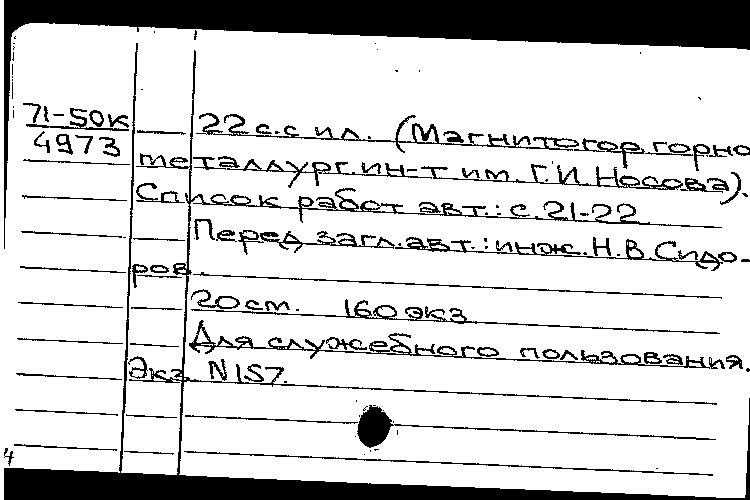 71-50к
4973
22 с.с ил. (Магнитогор.горно
металлург.ин-т им. Г.И. Носова).
Список работ авт.: с.21-22
Перед загл.авт.: инж. Н.В. Сидо-
ров.
20 см. 160 экз
Для служебного пользования.
Экз. N157.
4